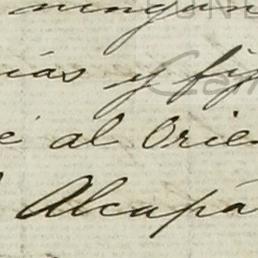 ningun
ias y fi
é al Orien
Alcapa